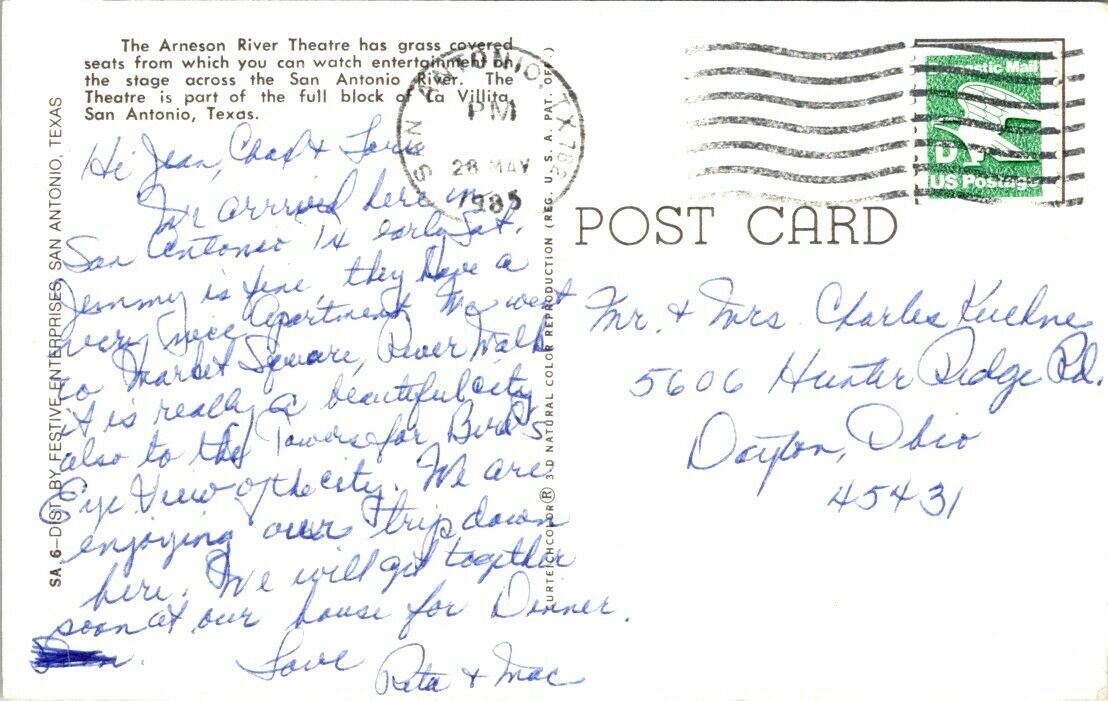 The Arneson River Theatre has grass covered
seats from which you can watch entertainment on
the stage across the San Antonio River. The
Theatre is part of the full block of La Villita,
San Antonio, Texas.
SAN ANTONIO, TX 782
PM
28 MAY
1985
Domestic Mail
D
US Postage
POST CARD
SA 6—DIST. BY FESTIVE ENTERPRISES, SAN ANTONIO, TEXAS
CURTEICHCOLOR® 3-D NATURAL COLOR REPRODUCTION (REG. U.S.A. PAT. OFF.)
Hi Jean, Chas &
We arrived here in
San Antonio TX early Sat.
Jemmy is fine, they have a
very nice apartment We went
to Market Square, River Walk
it is really a beautiful city
also to the Towers for Bird's
Eye View of the city. We are
enjoying our trip down
here. We will get together
soon at our house for Dinner.
Love Rita & Mac
Mr. & Mrs Charles Kuehne
5606 Hunter Ridge Rd.
Dayton, Ohio
45431